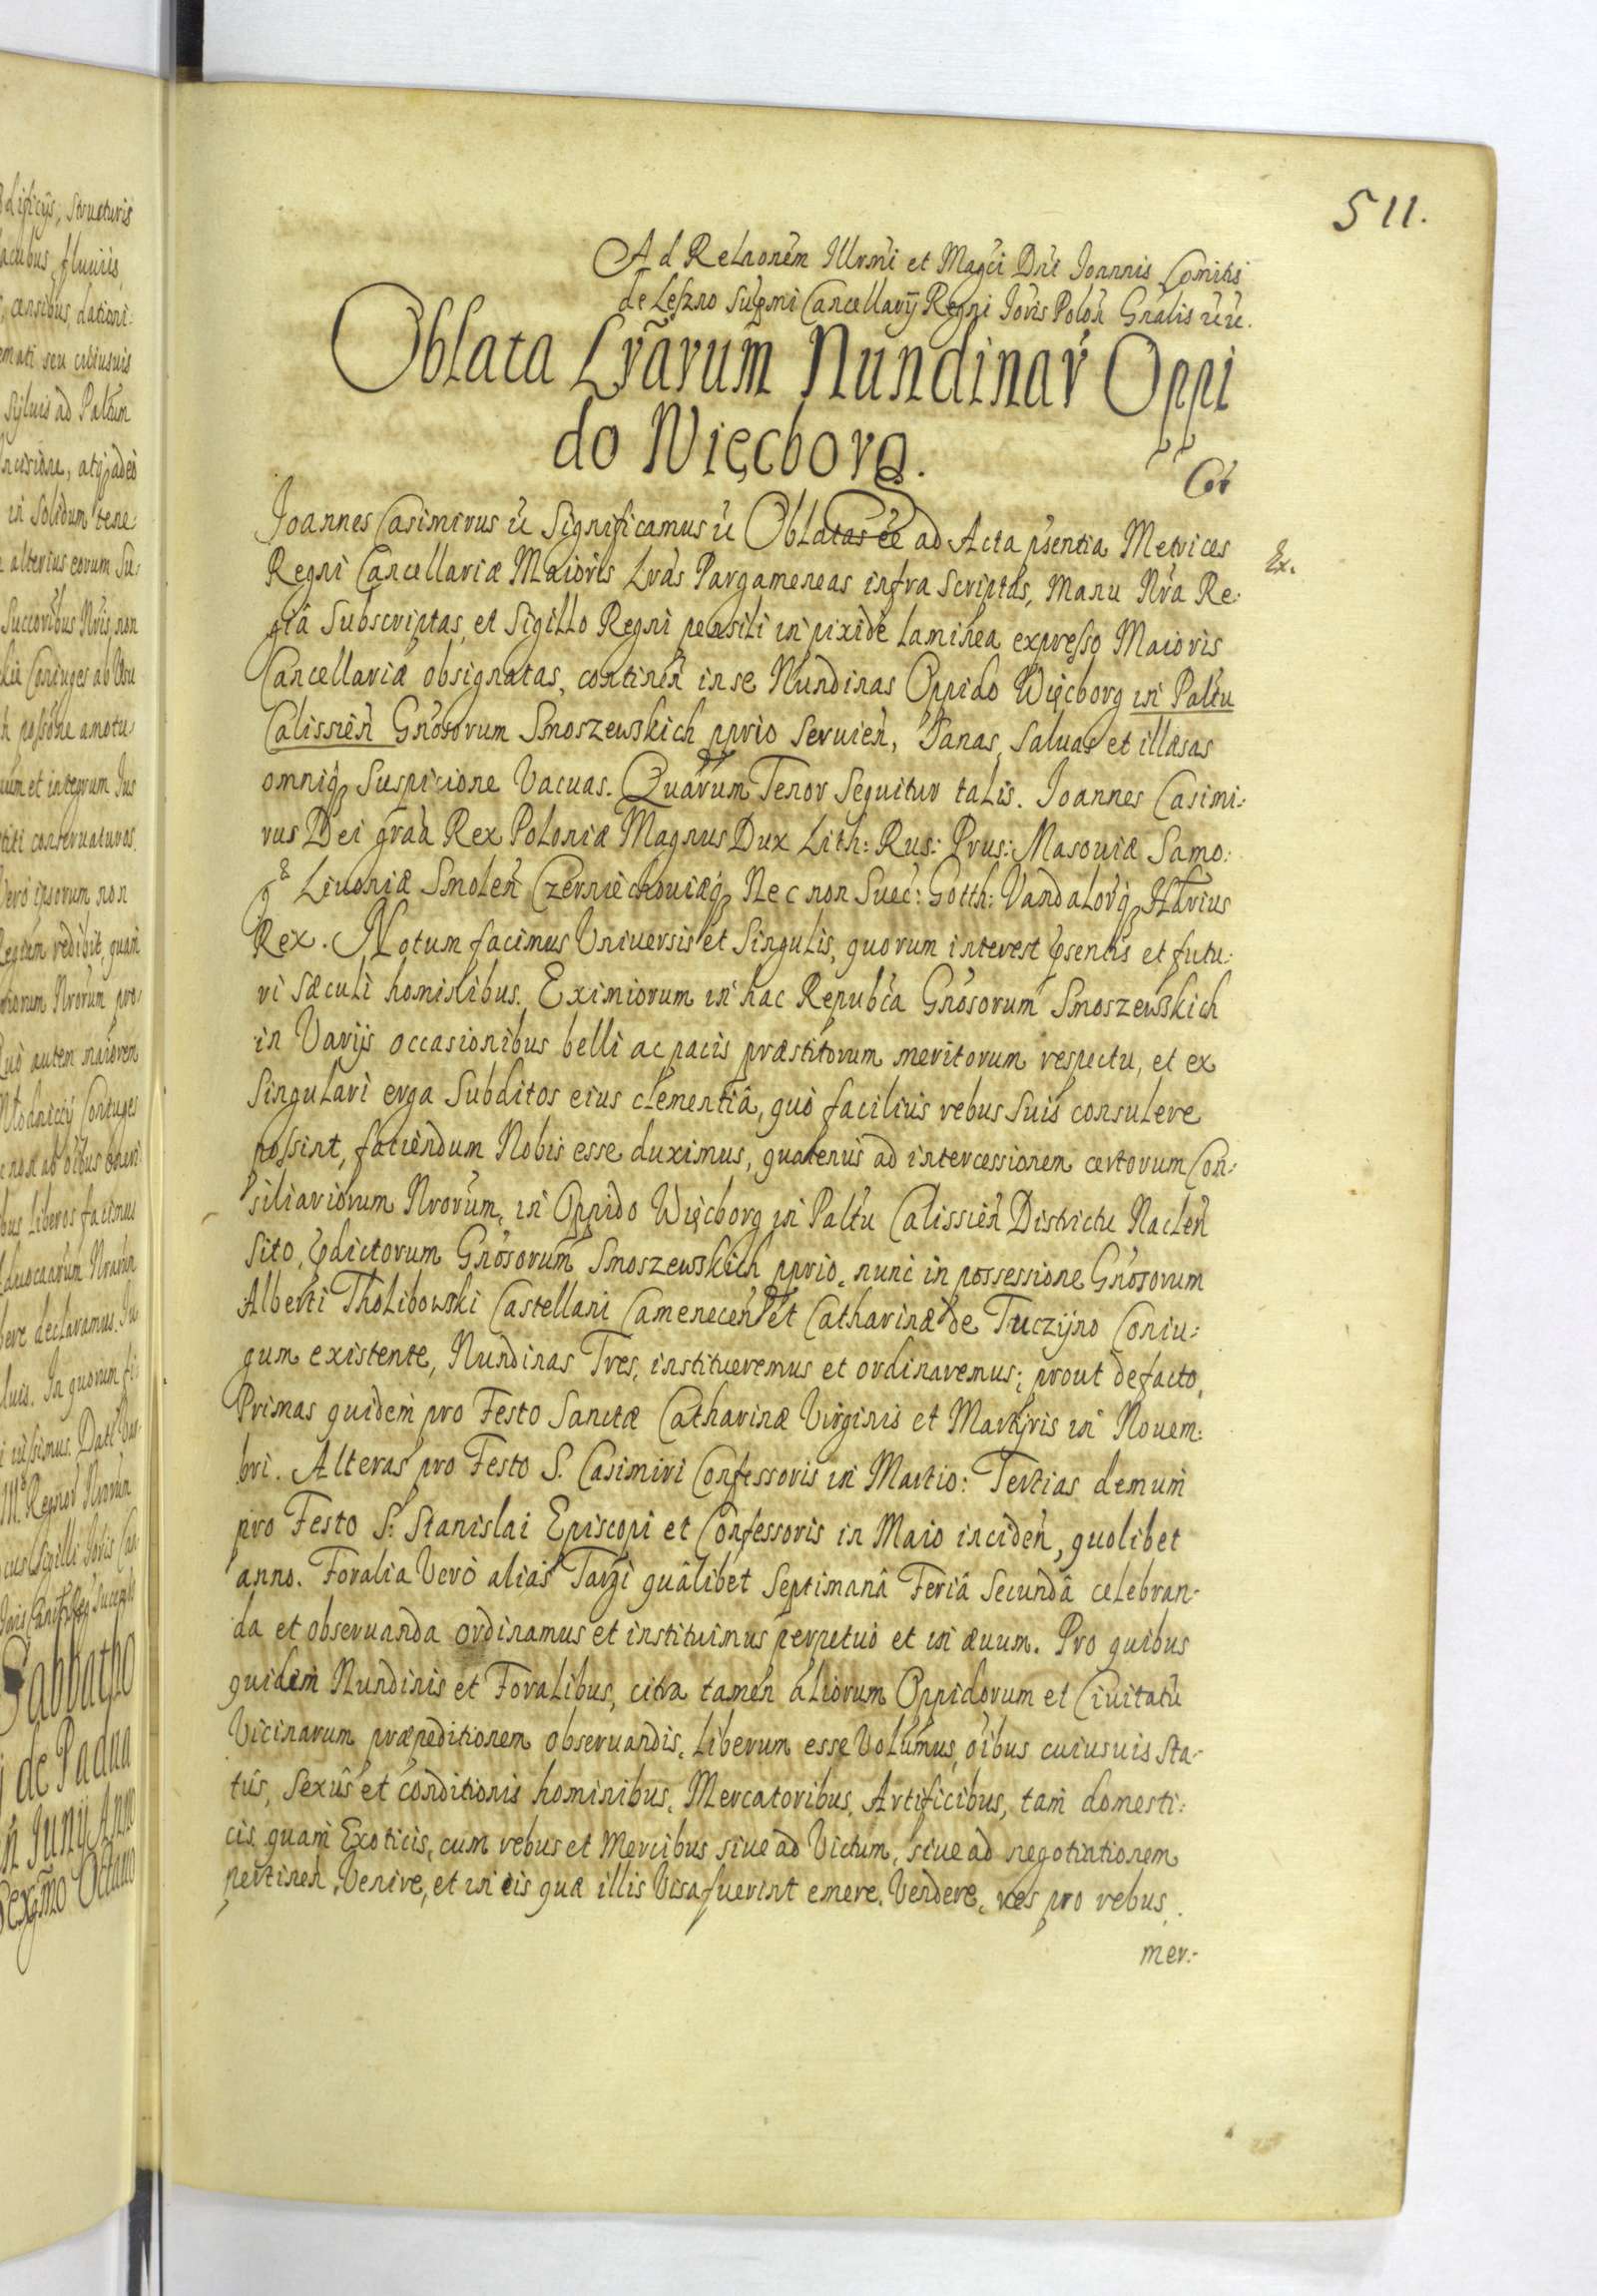 511.
Ad Relaonem Illrmi et Magci Dni Joannis Comitis
de Leszno Supmi Cancellarij Regni Joris Polon Gnalis
Oblata Lrarum Nundinar Oppi
do Więcborg.
Cor
Joannes Casimirus Significamus Oblatas ee ad Acta psentia Metrices
Ex.
Regni Cancellariæ Maioris Lras Pargameneas infra scriptas, Manu Nra Re:
giâ Subscriptas, et Sigillo Regni pensili in pixide laminea expresso Maioris
Cancellariæ obsignatas, continen in se Nundinas Oppido Więcborg in Paltu
Calissien Gnosorum Smoszewskich pprio Seruien, Sanas, saluas et illæsas
omniq Suspicione Vacuas. Quarum Tenor Sequitur talis. Joannes Casimi:
rus Dei graa Rex Poloniæ Magnus Dux Lith: Rus: Prus: Masouiæ Samo:
Liuoniæ Smolen Czerniechouiæq Nec non Suec: Gotth: Vandalorq Hærius
Rex. Notum facimus Vniuersis et Singulis, quorum interest psentis et futu:
ri sæculi hominibus. Eximiorum in hac Republca Gnosorum Smoszewskich
in Varijs occasionibus belli ac pacis præstitorum meritorum respectu, et ex
Singulari erga Subditos eius clementiâ, quò facilius rebus suis consulere
possint, faciendum Nobis esse duximus, quatenus ad intercessionem certorum Con:
siliariorum Nrorum, in Oppido Więcborg in Paltu Calissien Districtu Naclen
Sito, pdictorum Gnosorum Smoszewskich pprio, nunc in possessione Gnosorum
Alberti Tholibowski Castellani Camenecen et Catharinæ de Tuczyno Coniu:
gum existente, Nundinas Tres, institueremus et ordinaremus; prout defacto,
Primas quidem pro Festo Sanctæ Catharinæ Virginis et Martyris in Nouem:
bri. Alteras pro Festo S. Casimiri Confessoris in Martio: Tertias demum
pro Festo S: Stanislai Episcopi et Confessoris in Maio inciden, quolibet
anno. Foralia Vero alias Targi quâlibet Septimanâ Feriâ Secundâ celebran-
da et obseruanda ordinamus et instituimus perpetuò et in æuum. Pro quibus
quidem Nundinis et Foralibus, citra tamen aliorum Oppidorum et Ciuitatu
Vicinarum præpeditionem obseruandis, Liberum esse Volumus, oibus cuiusuis sta-
tûs, Sexûs et conditionis hominibus, Mercatoribus, Artificibus, tam domesti:
cis quam Exoticis, cum rebus et Mercibus siue ad Victum, siue ad negotiationem
pertinen, Venire, et in eis quæ illis Visa fuerint emere, Vendere, res pro rebus,
mer:-